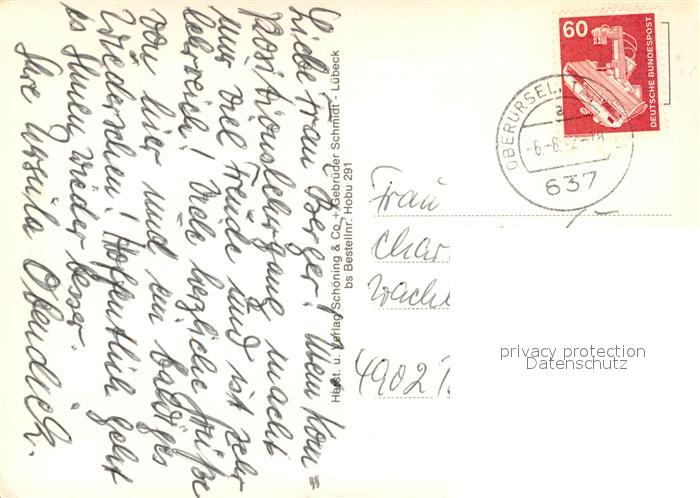 Liebe Frau Berger! Mein Kom=
positionslehrgang macht
mir viel Freude und ist sehr
lehrreich! Viele herzliche Grüße
von hier und ein baldiges
Wiedersehen! Hoffentlich geht
es Ihnen wieder besser.
Ihre Ursula
Herst. u. Verlag Schöning & Co + Gebrüder Schmidt - Lübeck
bs Bestellnr. Hobu 291
60
DEUTSCHE BUNDESPOST
OBERURSEL
637
Frau
Char
Wache
4902
privacy protection
Datenschutz